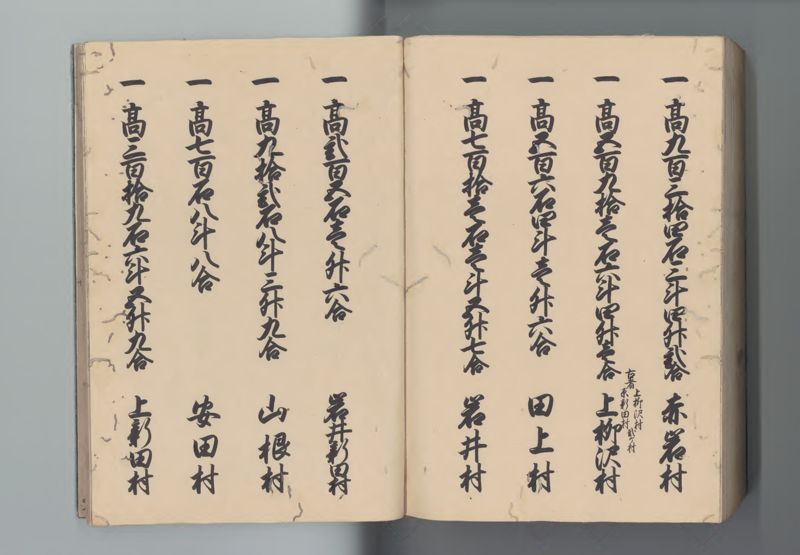 一 高九百三拾四石三斗四升弐合 赤岩村
一 高五百九拾壱石六斗四升壱合 上柳沢村
古者上柳沢村
新田村弐ケ村
一 高五百六石四斗壱升六合 田上村
一 高七百拾壱石壱斗五升七合 岩井村
一 高弐百五石壱升六合 岩井新田村
一 高九拾弐石八斗三升九合 山根村
一 高七百石八斗八合 安田村
一 高三百拾九石六斗五升九合 上新田村